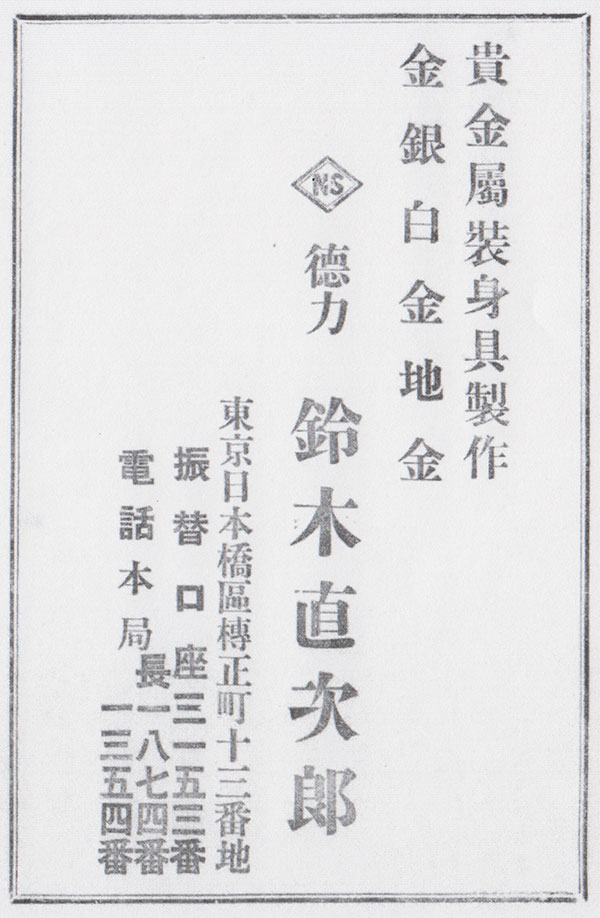 貴金屬裝身具製作
金銀白金地金
NS
德力 鈴木直次郎
東京日本橋區榑正町十三番地
振替口座三一五三番
電話本局
長一八七四番
一三五四番